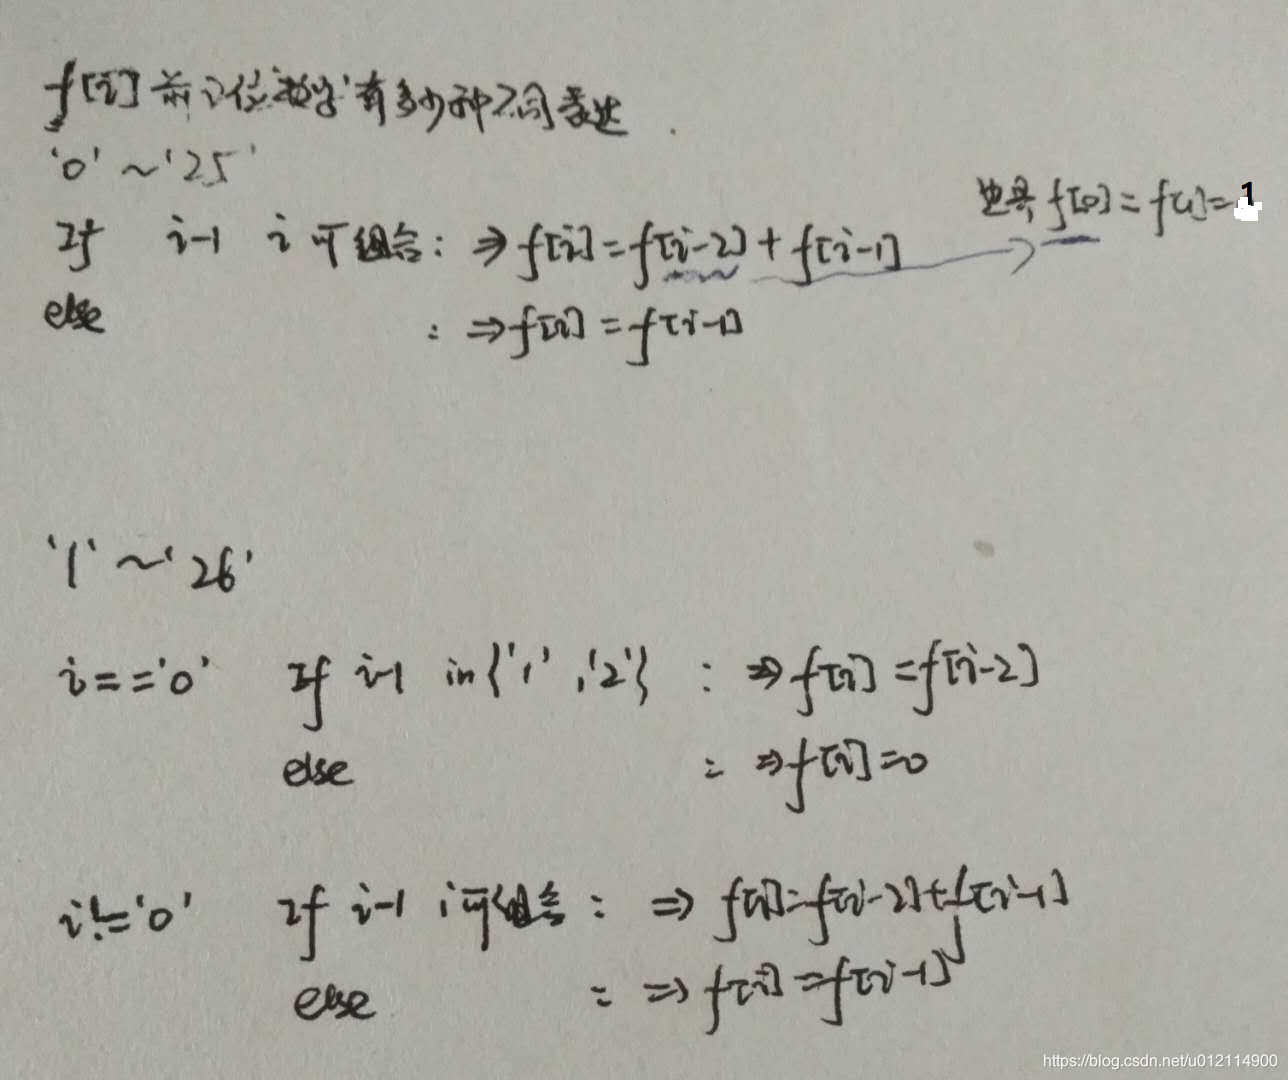 f[i] 前i位数字有多少种不同表达.
'0' ~ '25'
边界 f[0] = f[1] = 1
If i-1 i 可组合: ⇒ f[i] = f[i-2] + f[i-1]
else : ⇒ f[i] = f[i-1]
'1' ~ '26'
i == '0' If i-1 in {'1', '2'} : ⇒ f[i] = f[i-2]
else : ⇒ f[i] = 0
i != '0' If i-1 i 可组合 : ⇒ f[i] = f[i-2] + f[i-1]
else : ⇒ f[i] = f[i-1]
https://blog.csdn.net/u012114900